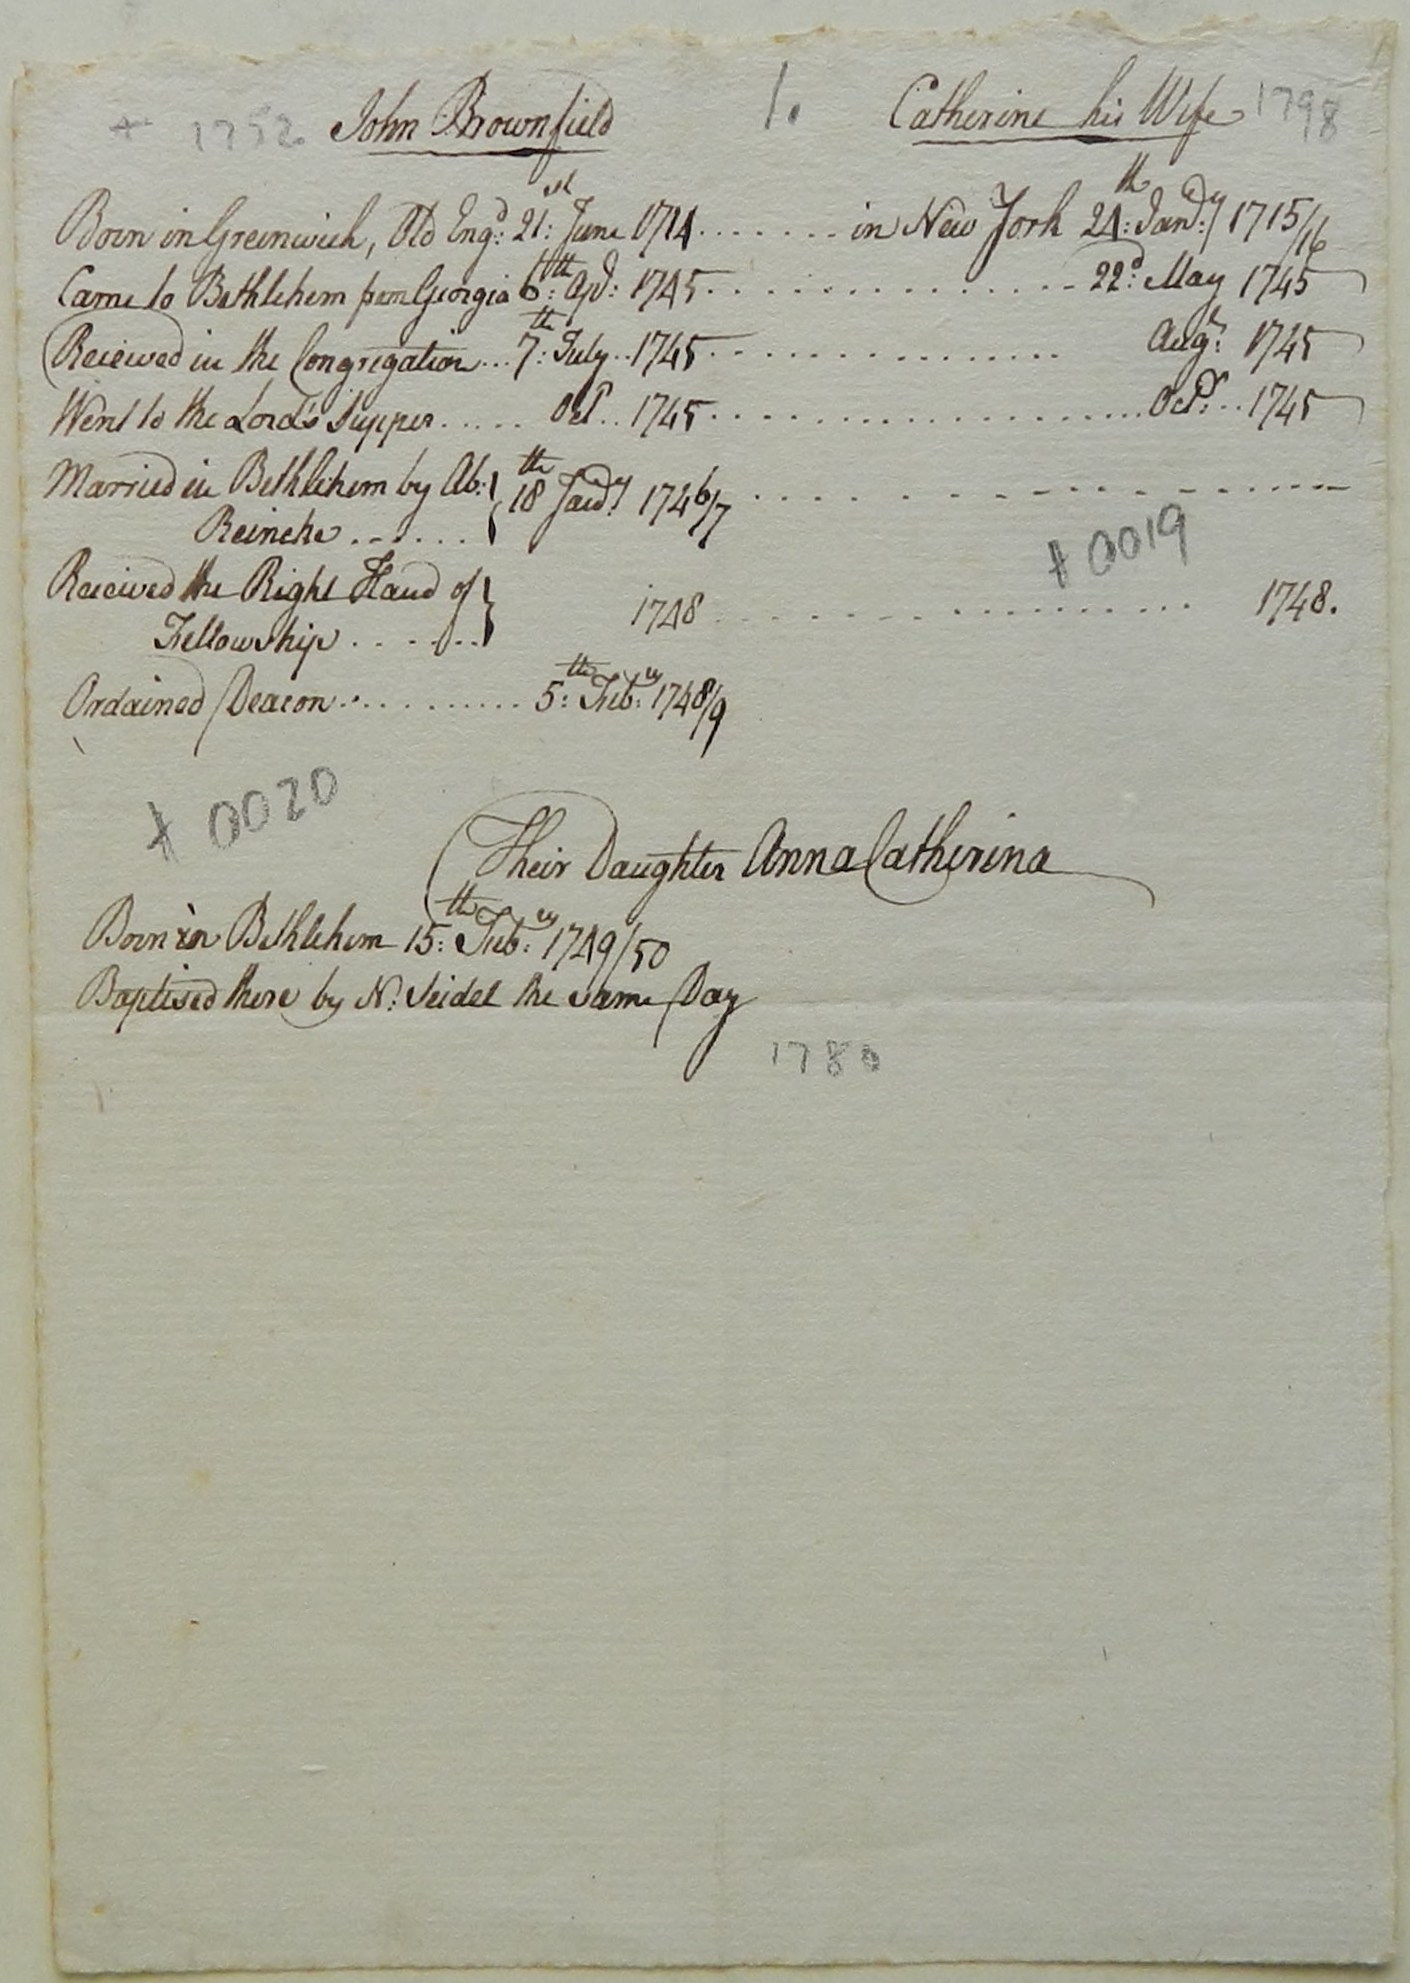 + 1752. John Brownfield 1. Catherine his Wife 1798
Born in Greenwich, Old Engd: 21st: June 1714 . . . . . . . in New York 24th: Jandy: 1715/16
Came to Bethlehem from Georgia 6th: Apd: 1745 . . . . . . . . . . . . . . 22d: May 1745
Received in the Congregation . . . 7th: July . . 1745 . . . . . . . . . . . . . . . . Augt: 1745
Went to the Lord's Supper . . . . . Oct . . 1745 . . . . . . . . . . . . . . . . . . Octr: . . 1745
Married in Bethlehem by Ab: } 18th Jandy: 1746/7 . . . . . . . . . . . . . . .
Reincke . . . . . .
# 0019
Received the Right Hand of } 1748 . . . . . . . . . . . . . . . . 1748.
Fellowship . . . . . . .
Ordained Deacon . . . . . . . . . . 5th: Febry: 1748/9
# 0020
Their Daughter Anna Catherina
Born in Bethlehem 15th: Febry: 1749/50
Baptised there by N: Seidel the same Day
1780